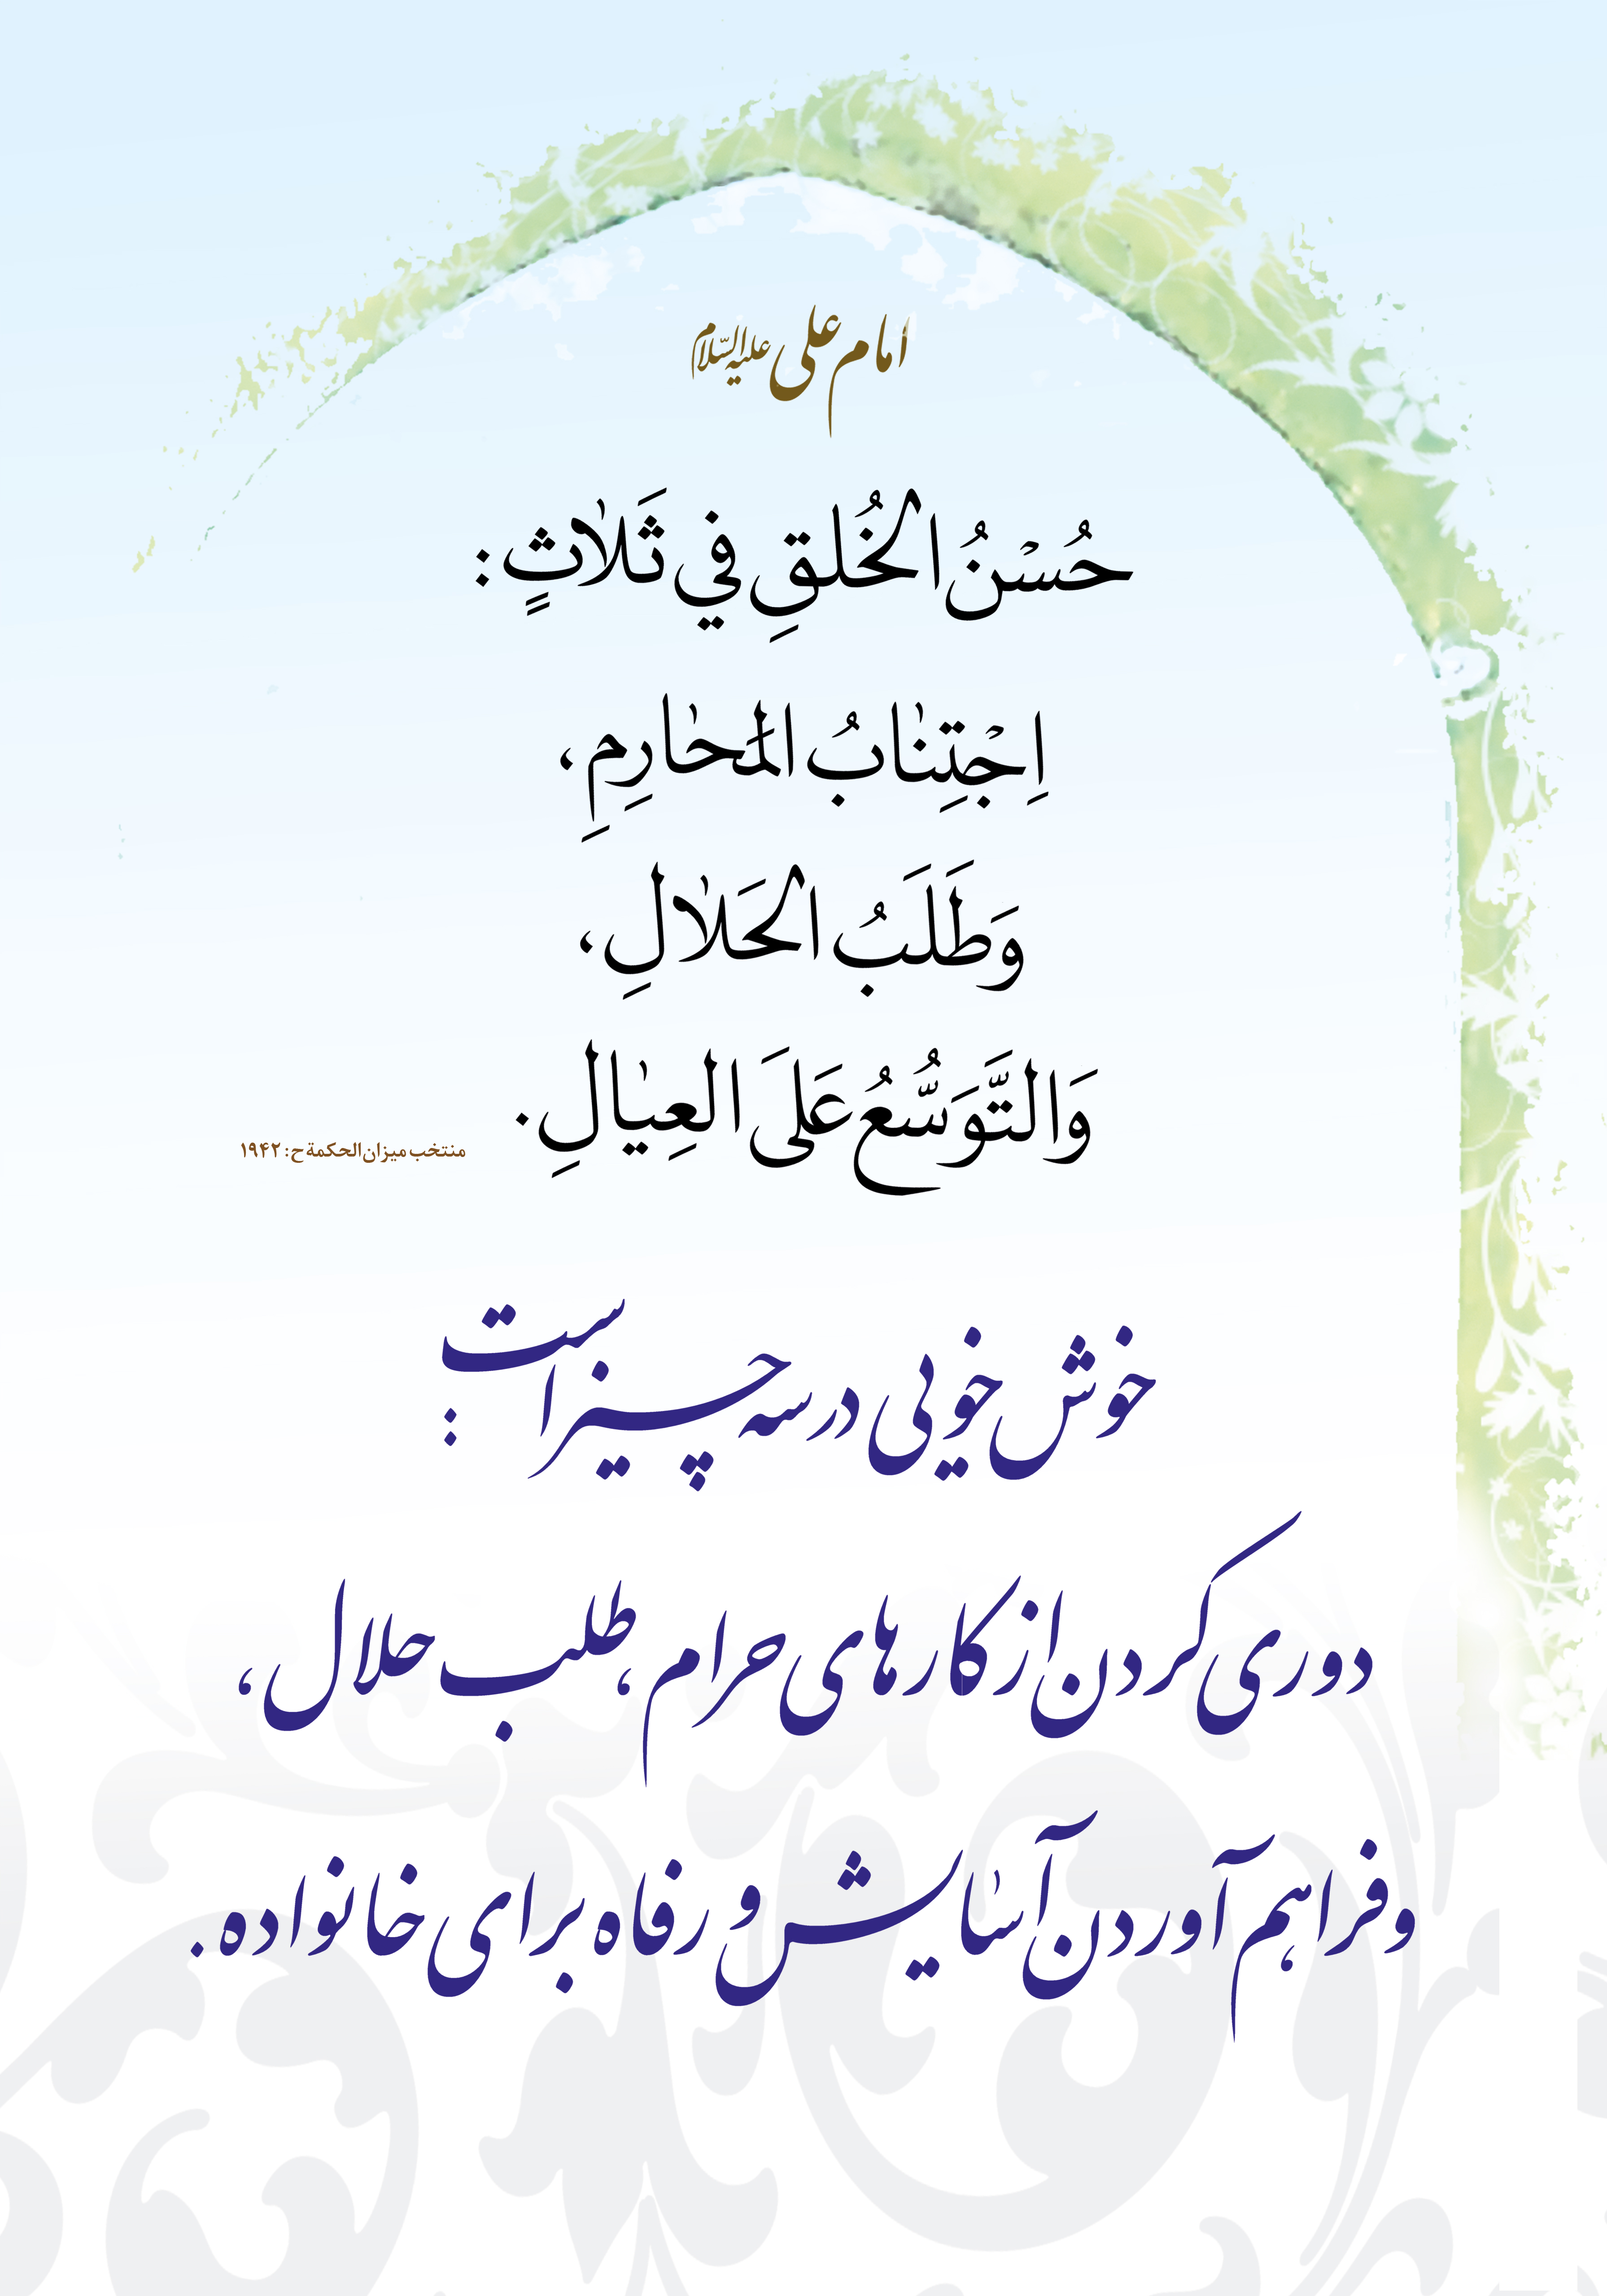 امام علی علیه‌السّلام
حُسْنُ الخُلقِ في ثَلاٰثٍ :
اِجْتِنٰابُ المَحٰارِمِ ،
وَطَلَبُ الحَلاٰلِ ،
وَالتَّوَسُّعُ عَلَی العِیٰالِ .
منتخب میزان الحکمة ح: ۱۹۴۲
خوش خویی در سه چیز است :
دوری کردن از کارهای حرام ، طلب حلال ،
و فراهم آوردن آسٰایش و رفاه برای خانواده .